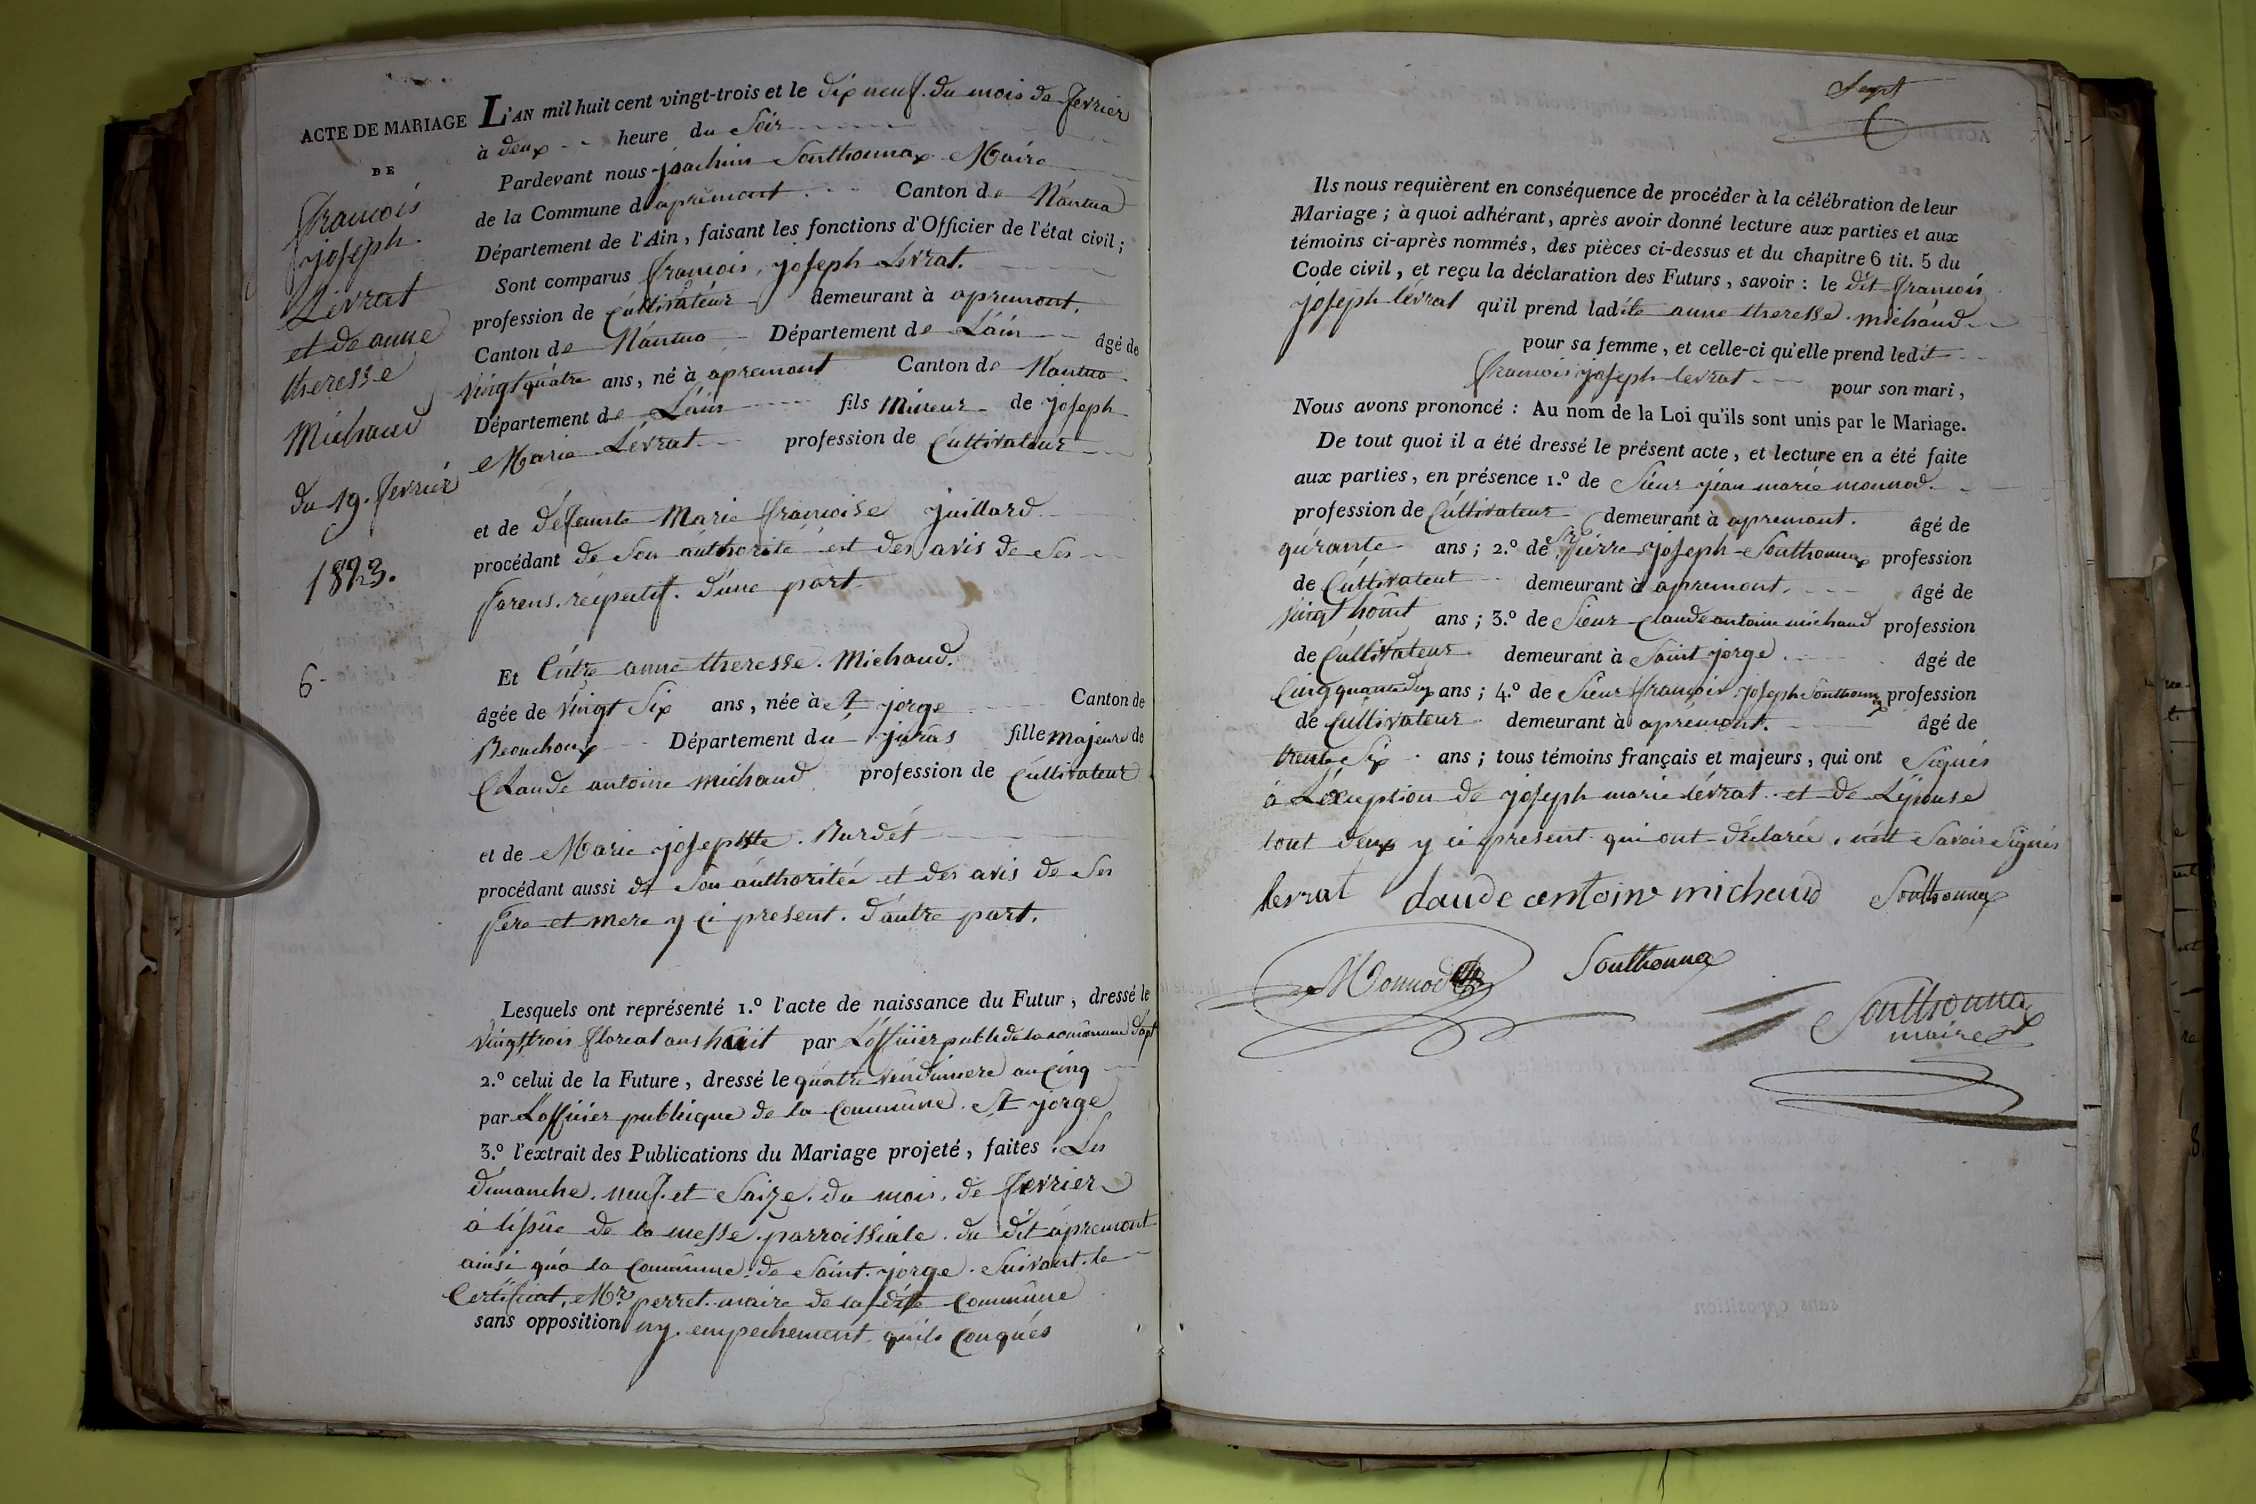 ACTE DE MARIAGE
DE
françois
joseph
Levrat
et de anne
theresse
Michaud
du 19. fevrier
1823.
6.
L'AN mil huit cent vingt-trois et le dix neuf. du mois de fevrier
à deux heure du Soir
Pardevant nous joachim Southonnax Maire
de la Commune d'apremont Canton de Nantua
Département de l'Ain, faisant les fonctions d'Officier de l'état civil;
Sont comparus françois, joseph Levrat.
profession de Cultivateur demeurant à apremont.
Canton de Nantua Département de L'ain âgé de
vingt quatre ans, né à apremont Canton de Nantua
Département de L'ain fils Mineur de joseph
Marie Levrat profession de Cultivateur
et de défeunte Marie françoise juillard
procédant de Son authorité est des avis de Ses
parens. réspectif. d'une part
Et Entre anne theresse. Michaud.
âgée de vingt Six ans, née à St jorge Canton de
Beouchoux Département du juras fille majeure de
Claude antoine michaud profession de Cultivateur
et de Marie josephtte. Burdet
procédant aussi de Son authoritée et des avis de Ses
père et mere y ci present. d'autre part.
Lesquels ont représenté 1.º l'acte de naissance du Futur, dressé le
vingt trois floreal ans huit par L'officier public de la commune d'apt
2.º celui de la Future, dressé le quatre vendimiere an Cinq
par L'officier publique de la Commune. St jorge
3.º l'extrait des Publications du Mariage projeté, faites. Les
dimanche. neuf. et Saize. du mois. de fevrier
à l'issûe de la messe. parroissiale. du dit apremont
ainsi qu'a la Commune. de Saint. jorge. Suivant. le
Certificat, Mr. perret. maire de la dite Commune
sans opposition ny. empechement quils Conqués
Sept
Ils nous requièrent en conséquence de procéder à la célébration de leur
Mariage; à quoi adhérant, après avoir donné lecture aux parties et aux
témoins ci-après nommés, des pièces ci-dessus et du chapitre 6 tit. 5 du
Code civil, et reçu la déclaration des Futurs, savoir: le dit françois
joseph levrat qu'il prend ladite anne theresse. michaud
pour sa femme, et celle-ci qu'elle prend ledit
françois joseph levrat pour son mari,
Nous avons prononcé: Au nom de la Loi qu'ils sont unis par le Mariage.
De tout quoi il a été dressé le présent acte, et lecture en a été faite
aux parties, en présence 1.º de Sieur jean marie monnod.
profession de Cultivateur demeurant à apremont. âgé de
qurante ans; 2.º de Sr pierre joseph Southonnax profession
de Cultivateut demeurant à apremont. âgé de
vingt houit ans; 3.º de Sieur Claude antoine michaud profession
de Cultivateur demeurant à Saint jorge. âgé de
Cinqquante dux ans; 4.º de Sieur françois joseph Southonnax profession
de Cultivateur demeurant à apremont. âgé de
trente Six ans; tous témoins français et majeurs, qui ont Signés
à L'éxeuption de joseph marie levrat et de L'épouse
tout deux y ci present qui ont déclarée. n'est Savoir Signés
levrat Claude antoine michaud Southonnax
Monnod Southonnax
Southonnax
maire